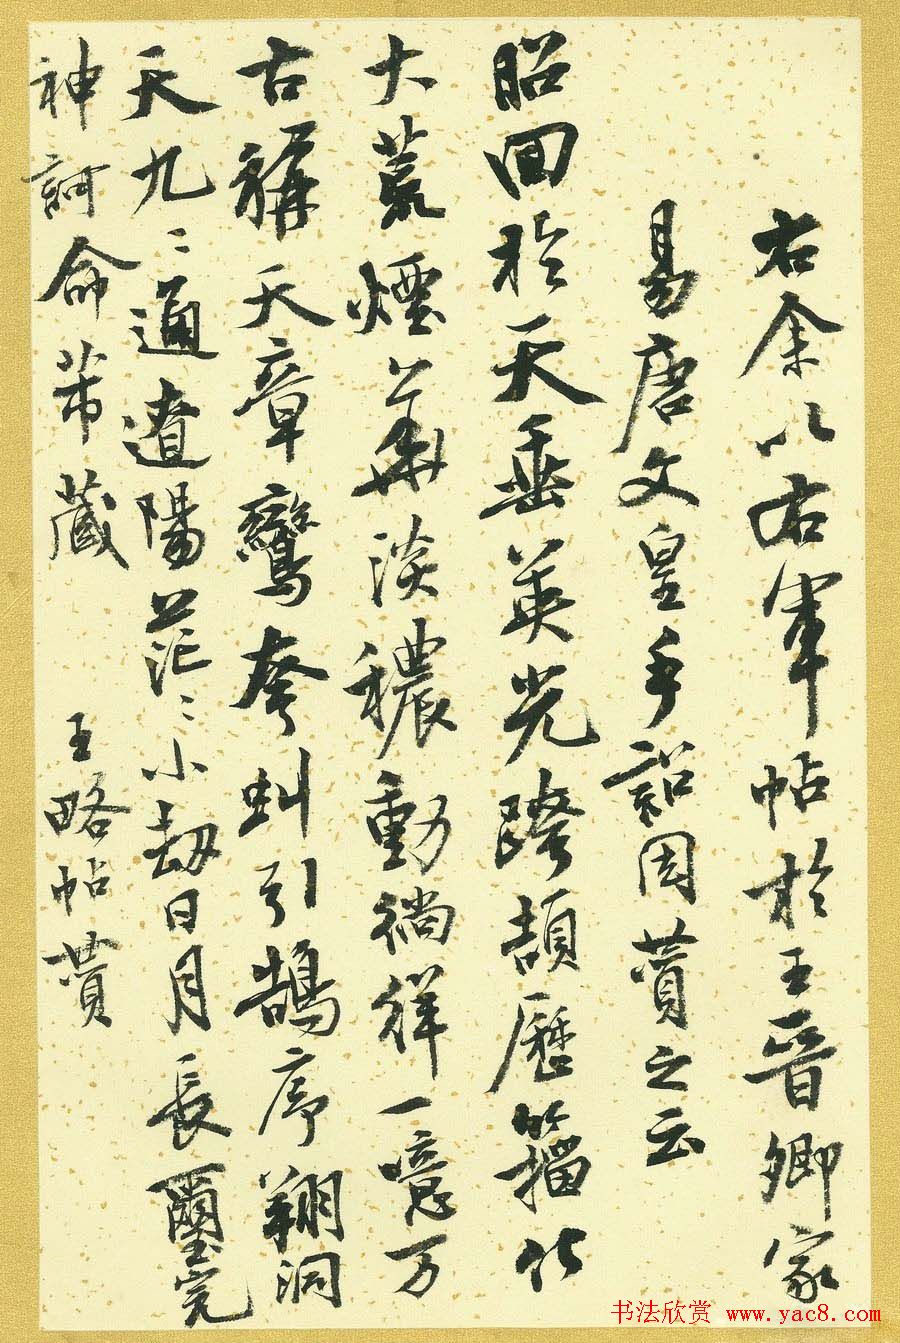 右余以右軍帖於王晉卿家
易唐文皇手詔因賛之云
昭回於天垂英光跨頡歷籀化
大荒煙華淡穠動徜徉一噫万
古稱天章鸞夸虯引鵠序翔洞
天九〻通遼陽茫〻小劫日月長璽完
神訶命芾藏 王略帖賛
书法欣赏 www.yac8.com